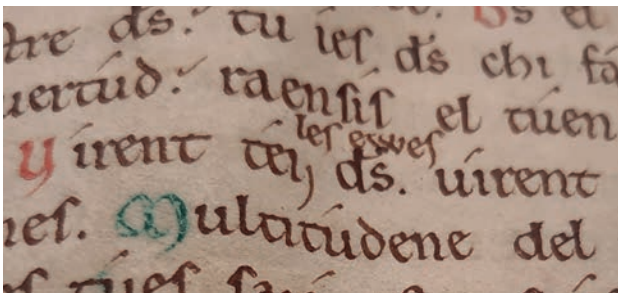 tre ds. tu ies ds chi fa
uertud. raensis el tuen
les ewes
Uirent tei ds. uirent
nes. Multitudene del